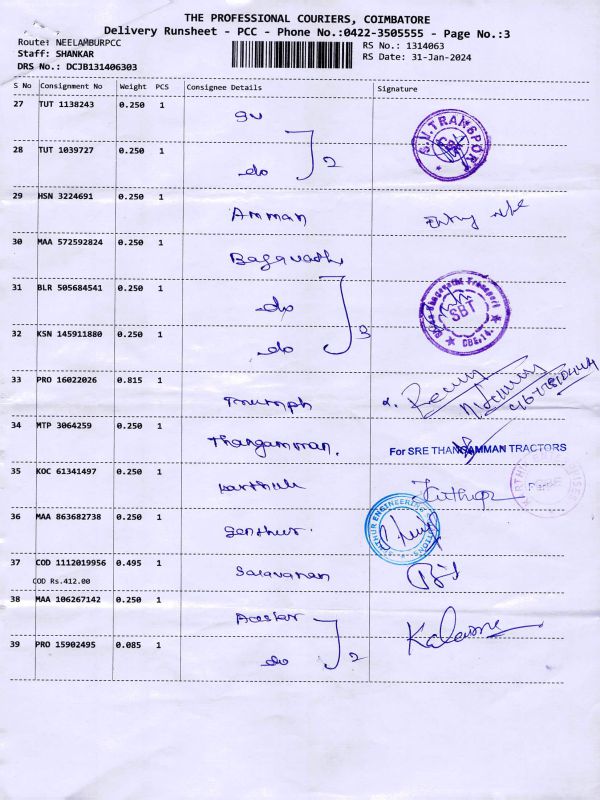 THE PROFESSIONAL COURIERS, COIMBATORE
Delivery Runsheet - PCC - Phone No.:0422-3505555 - Page No.:3
Route: NEELAMBURPCC
Staff: SHANKAR
DRS No.: DCJB131406303
RS No.: 1314063
RS Date: 31-Jan-2024
S No Consignment No Weight PCS Consignee Details Signature
27 TUT 1138243 0.250 1 S.V. TRANSPORT
28 TUT 1039727 0.250 1 do 2
29 HSN 3224691 0.250 1 Amman
30 MAA 572592824 0.250 1 Bagavadhi
31 BLR 505684541 0.250 1 do
32 KSN 145911880 0.250 1 do 3 SBT CBE-14.
33 PRO 16022026 0.815 1 Triumph
34 MTP 3064259 0.250 1 Thangamman. For SRE THANGAMMAN TRACTORS
35 KOC 61341497 0.250 1 Karthik
36 MAA 863682738 0.250 1 Senthur.
37 COD 1112019956 0.495 1 Saravanan
COD Rs.412.00
38 MAA 106267142 0.250 1
39 PRO 15902495 0.085 1 do 2